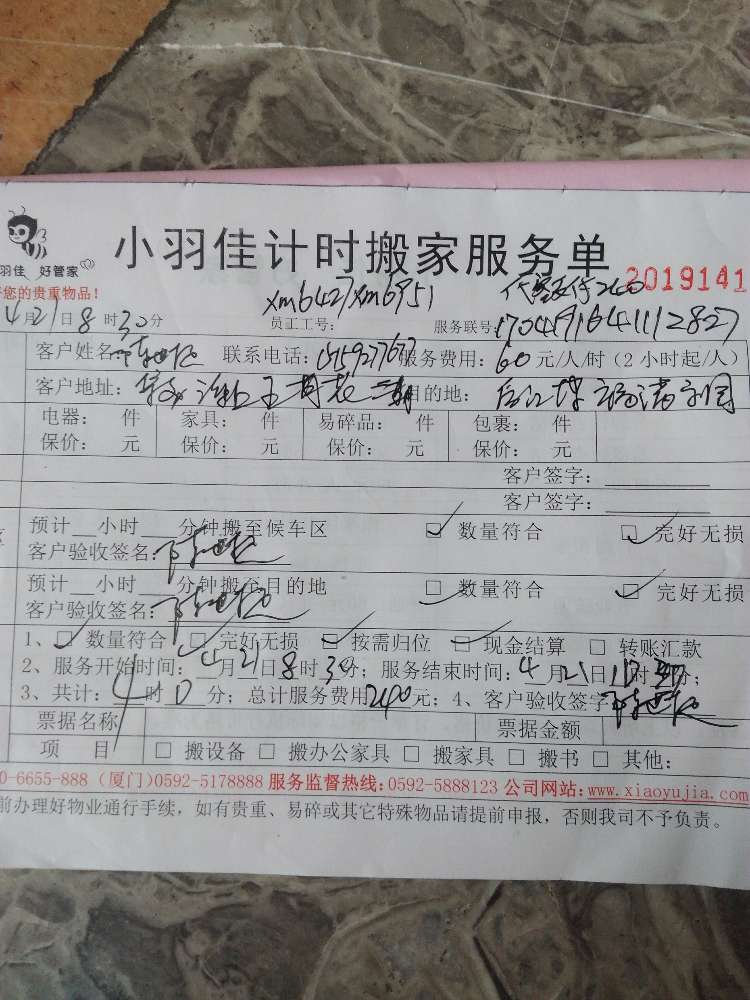 小羽佳计时搬家服务单
羽佳 好管家
2019141
您的贵重物品！
xm6427xm6951
4月21日8时30分 员工工号： 服务联号：
客户姓名： 联系电话： 服务费用：60元/人/时（2小时起/人）
客户地址： 目的地：
电器： 件 家具： 件 易碎品： 件 包裹： 件
保价： 元 保价： 元 保价： 元 保价： 元
客户签字：
客户签字：
预计 小时 分钟搬至候车区 数量符合 完好无损
客户验收签名：
预计 小时 分钟搬至目的地 数量符合 完好无损
客户验收签名：
1、 数量符合 完好无损 按需归位 现金结算 转账汇款
2、服务开始时间：4月21日8时30分；服务结束时间：4月21日 时 分；
3、共计：4时0分；总计服务费用240元；4、客户验收签字
票据名称 票据金额
项 目 搬设备 搬办公家具 搬家具 搬书 其他：
0-6655-888（厦门）0592-5178888 服务监督热线：0592-5888123 公司网站：www.xiaoyujia.com
前办理好物业通行手续，如有贵重、易碎或其它特殊物品请提前申报，否则我司不予负责。